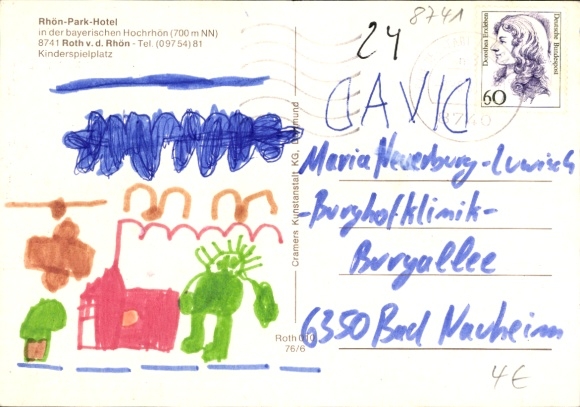 Rhön-Park-Hotel
in der bayerischen Hochrhön (700 m NN)
8741 Roth v. d. Rhön - Tel. (0 97 54) 81
Kinderspielplatz
8741
24
Dorothea Erxleben
Deutsche Bundespost
60
DAVID
Maria Neuerburg-Luwisch
-Burghofklinik-
Burgallee
6350 Bad Nauheim
Cramers Kunstanstalt KG, Dortmund
Roth
76/6
4€